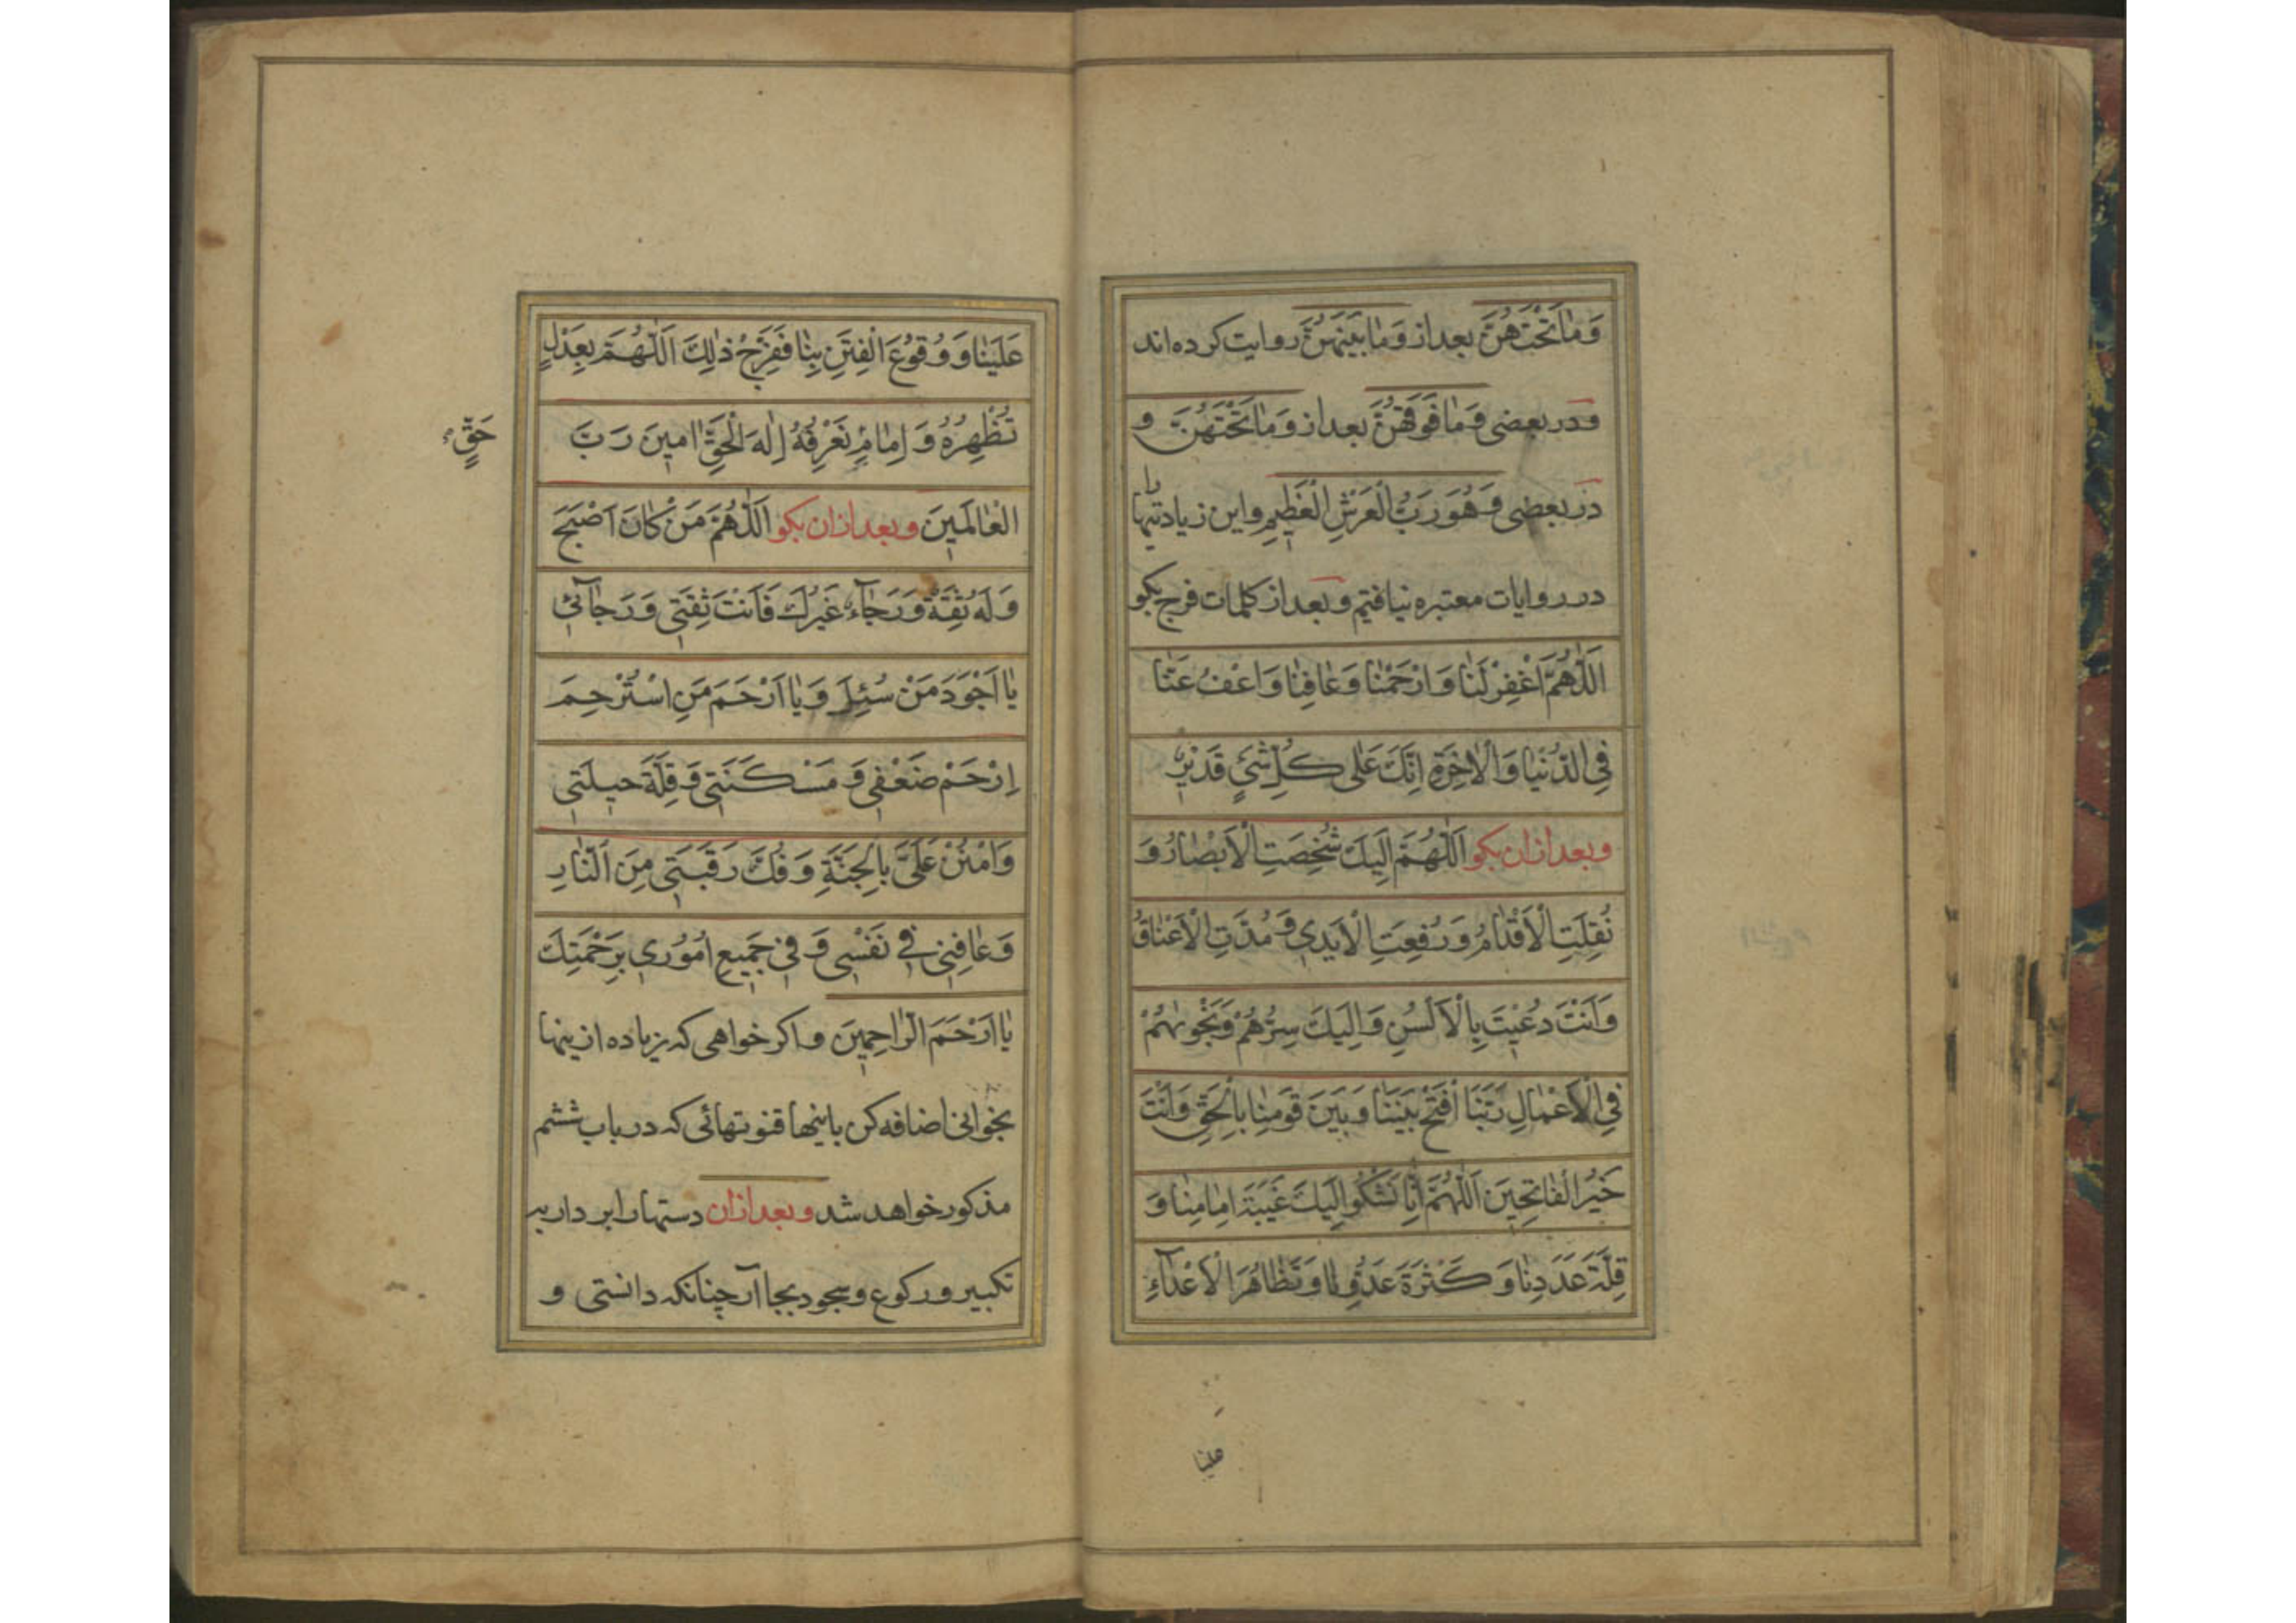 وَمٰا تَحْتَهُنَّ بعداز وَمٰا بَيْنَهُنَّ روایت کرده‌اند
ودر بعضی وَمٰا فَوْقَهُنَّ بعداز وَمٰا تَحْتَهُنَّ و
در بعضی وَهُوَ رَبُّ الْعَرْشِ الْعَظِيمِ واین زیادتیها را
در روایات معتبره نیافتیم وبعداز کلمات فرج بکو
اَللّٰهُمَّ اغْفِرْ لَنٰا وَارْحَمْنٰا وَعٰافِنٰا وَاعْفُ عَنّٰا
فِي الدُّنْيٰا وَالْاٰخِرَةِ اِنَّكَ عَلٰى كُلِّ شَيْءٍ قَدِيْرٌ
وبعدازان بکو اَللّٰهُمَّ اِلَيْكَ شُخِصَتِ الْاَبْصٰارُ وَ
نُقِلَتِ الْاَقْدٰامُ وَرُفِعَتِ الْاَيْدِي وَمُدَّتِ الْاَعْنٰاقُ
وَاَنْتَ دُعِيْتَ بِالْاَلْسُنِ وَاِلَيْكَ سِرُّهُمْ وَنَجْوٰيهُمْ
فِي الْاَعْمٰالِ رَبَّنَا افْتَحْ بَيْنَنٰا وَبَيْنَ قَوْمِنٰا بِالْحَقِّ وَاَنْتَ
خَيْرُ الْفٰاتِحِيْنَ اَللّٰهُمَّ اِنّٰا نَشْكُوا اِلَيْكَ غَيْبَةَ اِمٰامِنٰا وَ
قِلَّةَ عَدَدِنٰا وَكَثْرَةَ عَدُوِّنٰا وَتَظٰاهُرَ الْاَعْدٰآءِ
علینا
عَلَيْنٰا وَوُقُوْعَ الْفِتَنِ بِنٰا فَفَرِّجْ ذٰلِكَ اَللّٰهُمَّ بِعَدْلٍ
تُظْهِرُهُ وَاِمٰامِ نَعْرِفُهُ اِلٰهَ الْحَقِّ اٰمِينَ رَبَّ
حَقٍّ
الْعٰالَمِينَ وبعدازان بکو اَللّٰهُمَّ مَنْ كٰانَ اَصْبَحَ
وَلَهُ ثِقَةٌ وَرَجٰآءٌ غَيْرُكَ فَاَنْتَ ثِقَتِي وَرَجٰآئِي
يٰا اَجْوَدَ مَنْ سُئِلَ وَيٰا اَرْحَمَ مَنِ اسْتُرْحِمَ
اِرْحَمْ ضَعْفِي وَمَسْكَنَتِي وَقِلَّةَ حِيلَتِي
وَامْنُنْ عَلَيَّ بِالْجَنَّةِ وَفُكَّ رَقَبَتِي مِنَ النّٰارِ
وَعٰافِنِي فِي نَفْسِي وَفِي جَمِيعِ اُمُوْرِي بِرَحْمَتِكَ
يٰا اَرْحَمَ الرّٰاحِمِينَ واکر خواهی که زیاده ازینها
بخوانی اضافه کن باینها قنوتهائی که در باب ششم
مذکور خواهد شد وبعدازان دستها را بردار بد
تکبیر ورکوع وسجود بجا آر چنانکه دانستی و